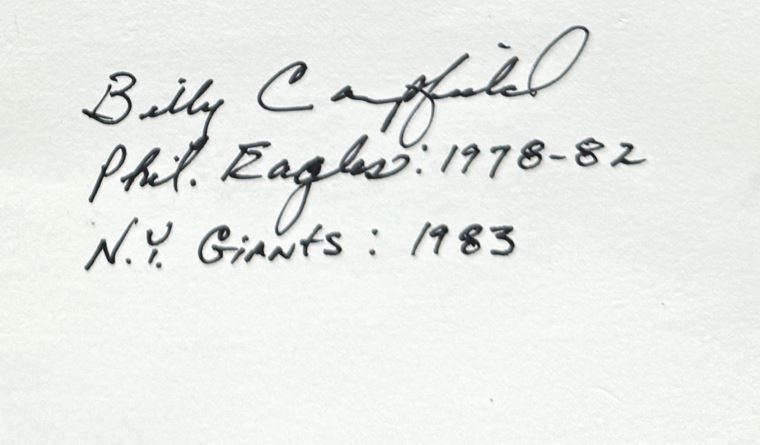 Billy Campfield
Phil. Eagles: 1978-82
N.Y. GIANTS: 1983